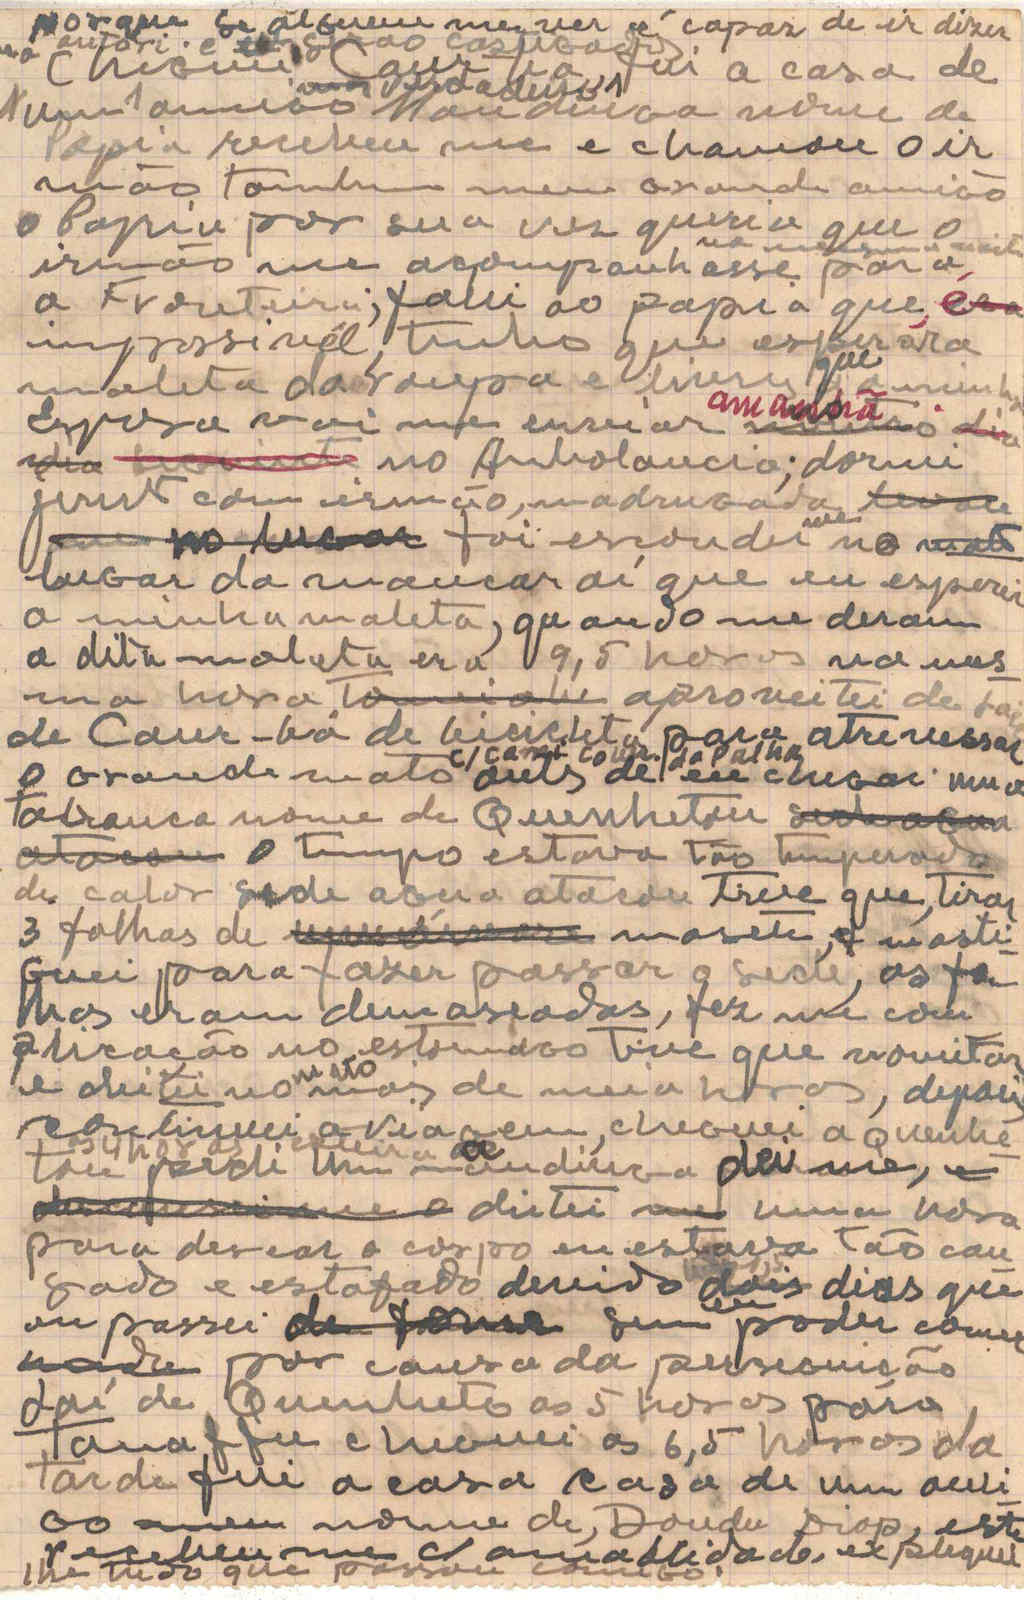 porque se alguem me ver é capaz de ir dizer
autori. e serão castigados
Cheguei Caur-bá fui a casa de
um amigo Mandinga nome de
Papia recebeu me e chamou o ir
mão tambem meu grande amigo
o Papia por sua vez queria que o
irmão me acompanhasse para
a Fronteira; falei ao papia que, era
impossivel, tenho que esperar a
maleta da roupa e livru que a minha
Esposa vai me enviar amanhã dia
no Ambolancia; dormi
junt com irmão, madrugada levou
no lugar foi esconder me no mato
lugar da mancar aí que eu esperei
a minha maleta, quando me deram
a dita maleta era 9,5 horas na mes
ma hora aproveitei de sair
de Caur-bá de bicicleta para atrevessar
o grande mato antes de eu chegar numa
tabanca nome de Quenhetou
o tempo estava tão temperado
de calor sede agua atacou tive que, tirar
3 folhas de masete, e masti
guei para fazer passar o sede, as fo
lhas eram demaseadas, fez me com
plicação no estomago tive que vomitar
e deitei no mato mais de meia horas, depois
continuei a viagem, cheguei a Quenhe
tou pedi um mandinga deu me, e
deitei me uma hora
para descar o corpo eu estava tão can
sado e estafado devido dois dias que
eu passei de fome sem eu poder comer
nada por causa da perseguição
daí de Quenheto as 5 horas para
Tanaffe cheguei as 6,5 horas da
tarde fui a casa casa de um ami
go meu nome de, Doudu Diop, este
recebeu me c/ amabilidade, expliquei
lhe tudo que passou comigo.